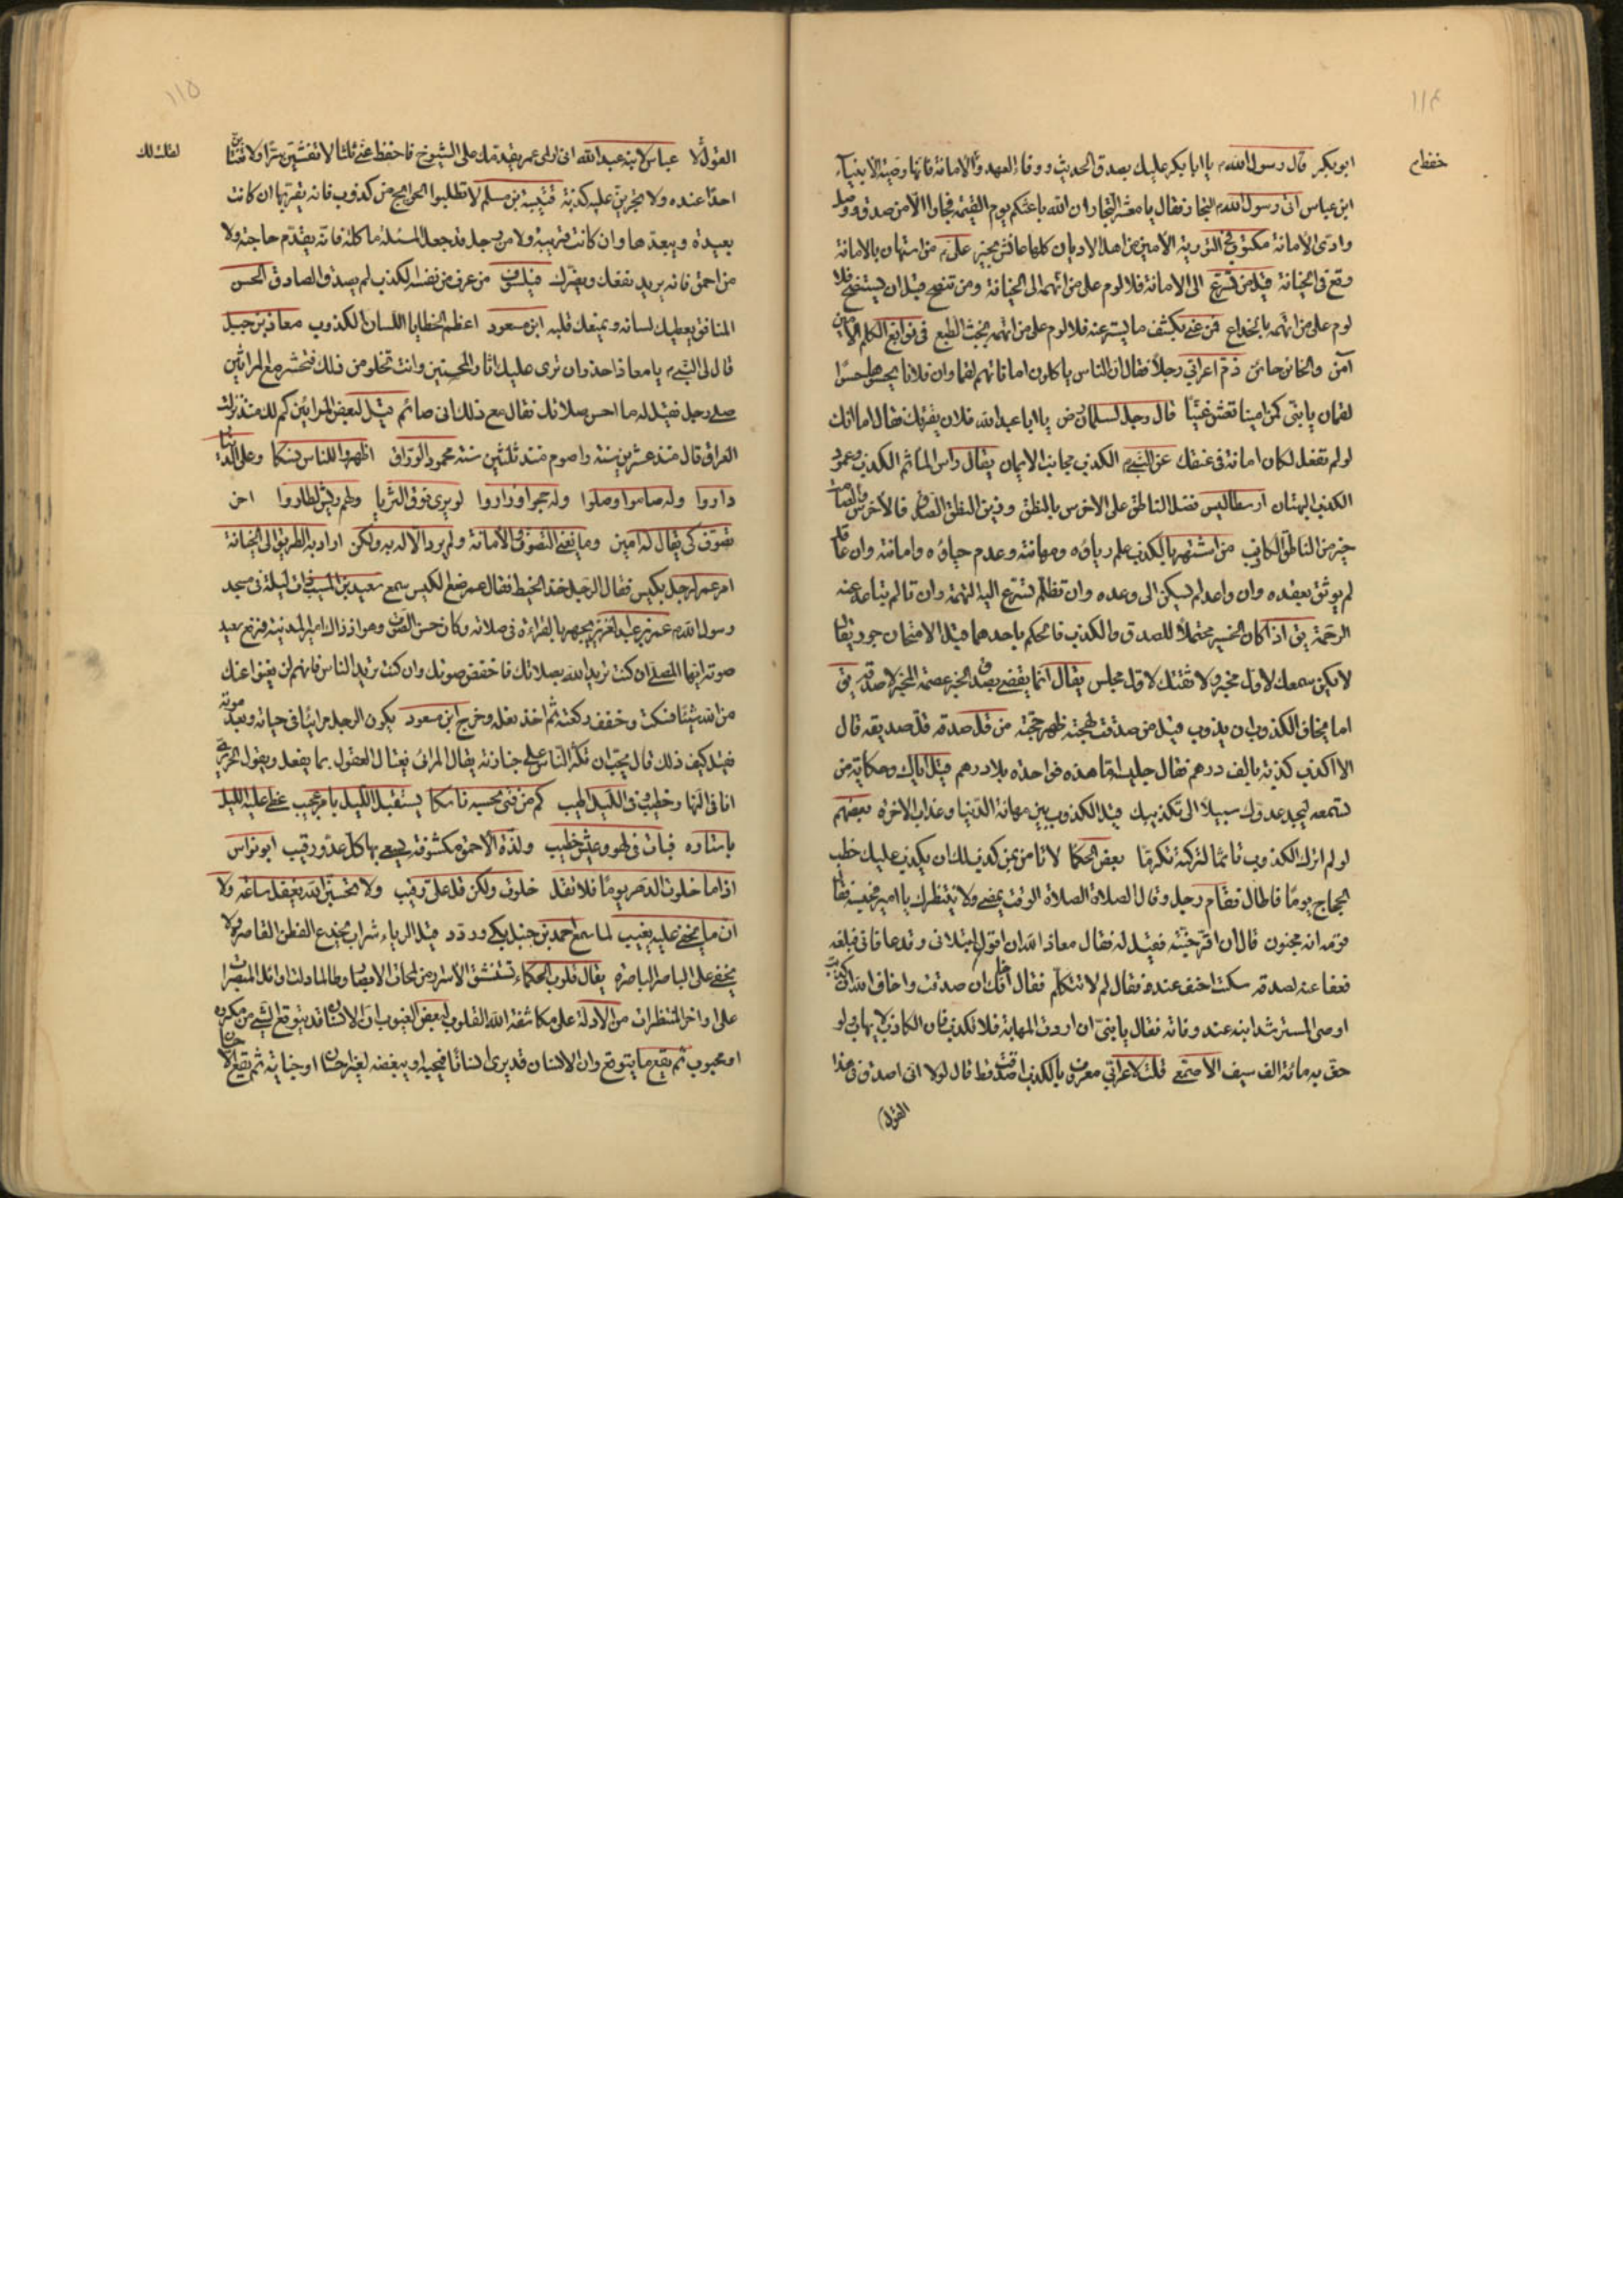 ١١٤
خفظم
ابو بكر قال رسول الله م يا ابا بكر عليك بصدق الحديث ووفاء العهد واداء الامانة فانها وصية الانبياء
ابن عباس اتى رسول الله م التجار فقال يا معشر التجار ان الله باعثكم يوم القيمة فجارا الا من صدق ووصل
وادى الامانة مكتوب في التورية الامين من اهل الاديان كلها عائش بخير على من استهان بالامانة
وقع فى الخيانة قيل من تسرع الى الامانة فلا لوم على من اتهمه الى الخيانة ومن تنصح قبل ان يستنصح فلا
لوم على من اتهمه بالخداع من عنى بكشف ما يستر عنه فلا لوم على من اتهمه بخبث الطبع فى نوابغ الكلم الامين
آمن والخائن حائن ذم اعرابي رجلاً فقال ان الناس ياكلون اماناتهم لقما وان فلانا يحسوها حسوا
لقمان يا بنى كن امينا تعش غنيا قال رجل لسلمان رض يا ابا عبد الله فلان يقرئك فقال اما انك
لو لم تفعل لكان امانة فى عنقك عن النبي م الكذب مجانب الايمان يقال راس المآثم الكذب وعمود
الكذب البهتان ارسطاليس فضل الناطق على الاخرس بالنطق وزين النطق الصدق فالاخرس والصامت
خير من الناطق الكاذب من اشتهر بالكذب علم رياؤه ومهانته وعدم حياؤه وامانته وان عاقد
لم يوثق بعقده وان واعد لم يسكن الى وعده وان تظلم تسرع اليه التهمة وان تالم تباعد عنه
الرحمة يق اذا كان الخبر محتملاً للصدق والكذب فالحكم باحدهما قبل الامتحان جور يقال
لا يكن سمعك لاول مخبر ولا ثقتك لاول مجلس يقال انما يقضى بصدق الخبر عصمة المخبر لا صدقه يق
اما يخاف الكذوب ان يذوب قيل من صدقت لهجته ظهر حجته من قل صدقه قل صديقه قال
الا اكذب كذبة بالف درهم فقال جليسه اما هذه فواحدة بلا درهم قيل اياك وحكاية من
تسمعه ليجد عدوك سبيلاً الى تكذيبك قيل الكذوب بين مهانة الدنيا وعذاب الاخرة بعضهم
لو لم اترك الكذوب تاثما لتركته تكرما بعض الحكما لا تامن من كذب لك ان يكذب عليك خطب
الحجاج يوما فاطال فقام رجل وقال الصلاة الصلاة الوقت يمضى ولا ينتظرك يا امير فحبسه فقال
قومه انه مجنون قال ان اقر خليته فقيل له فقال معاذ الله ان اقول ابتلانى وقد عافانى فبلغه
فعفا عنه لصدقه سكت احنف عنده فقال لم لا تتكلم فقال اخافك ان صدقت واخاف الله ان كذبت
اوصى المسترشد ابنه عند وفاته فقال يا بنى ان اردت المهابة فلا تكذب فان الكاذب لا يهاب ولو
حف به مائة الف سيف الاصمعى قلت لاعرابى معروف بالكذب اصدقت قط قال لولا انى اصدق فى هذا
القول
١١٥
لقلت لك
القول لا عباس لابنه عبد الله انى ارى عمر يقدمك على الشيوخ فاحفظ عنى ثلثا لا تفشين سرا ولا تغتابن
احدا عنده ولا يجربن عليه كذبة قتيبة بن مسلم لا تطلبوا الحوايج من كذوب فانه يقربها ان كانت
بعيدة ويبعدها وان كانت قريبة ولا من رجل قد جعل المسئلة ماكلة فانه يقدم حاجته ولا
من احمق فانه يريد نفعك ويضرك فيلسوف من عرف من نفسه الكذب لم يصدق الصادق الحسن
المنافق يعطيك لسانه ويمنعك قلبه ابن مسعود اعظم الخطايا اللسان الكذوب معاذ بن جبل
قال لى النبى م يا معاذ احذر ان ترى عليك اثار المحسنين وانت تخلو من ذلك فتحشر مع المرائين
صلى رجل فقيل له ما احسن صلاتك فقال مع ذلك انى صائم قيل لبعض المرائين كم لك منذ نزلت
العراق قال منذ عشرين سنة واصوم منذ ثلثين سنة محمود الوراق اظهروا للناس نسكا وعلى الدينار
داروا وله صاموا وصلوا وله حجوا وزاروا لو يرى فوق الثريا ولهم ريش لطاروا اخر
تصوف كى يقال له امين وما يعنى التصوف والامانة ولم يرد الاله به ولكن اراد به الطريق الى الخيانة
امر عمر لرجل بكيس فقال الرجل خذ الخيط فقال عمر ضع الكيس سمع سعيد بن المسيب ذات ليلة فى مسجد
رسول الله م عمر بن عبد العزيز يجهر بالقراءة فى صلاته وكان حسن الصوت وهو اذ ذاك امير المدينة فرفع سعيد
صوته ايها المصلى ان كنت تريد الله بصلاتك فاخفض صوتك وان كنت تريد الناس فانهم لن يغنوا عنك
من الله شيئا فسكت وخفف ركعته ثم اخذ نعله وخرج ابن مسعود يكون الرجل مرائيا فى حياته وبعد موته
فقيل كيف ذلك قال يحب ان تكثر الناس على جنازته يقال المرائى يغتال العقول بما يفعل ويقول الحريرى
انا فى النهار خطيب وفى الليل اطيب كم من فتى تحسبه ناسكا يستقبل الليل بامر عجيب غطى عليه الليل
باستاره فبات فى لهو وعيش خطيب ولذة الاحمق مكشوفة يسعى بها كل عدو رقيب ابو نواس
اذا ما خلوت الدهر يوما فلا تقل خلوت ولكن قل على رقيب ولا تحسبن الله يغفل ساعة ولا
ان ما يخفى عليه يغيب لما سمع احمد بن حنبل بكى وردد قيل الرياء شراب يخدع الفطن القاصرة ولا
يخفى على الباصر الباصرة يقال قلوب الحكماء تستشق الاسرار من لمحات الابصار وطالما دلت اوائل المبصرات
على اواخر المنتظرات من الادلة على مكاشفة الله القلوب لبعض الغيوب ان الانسان قد يتوقع الشئ من مكروه
او محبوب ثم يقع ما يتوقع وان الانسان قد يرى انسانا فيحبه او يبغضه لغير احسان او جناية ثم يقع